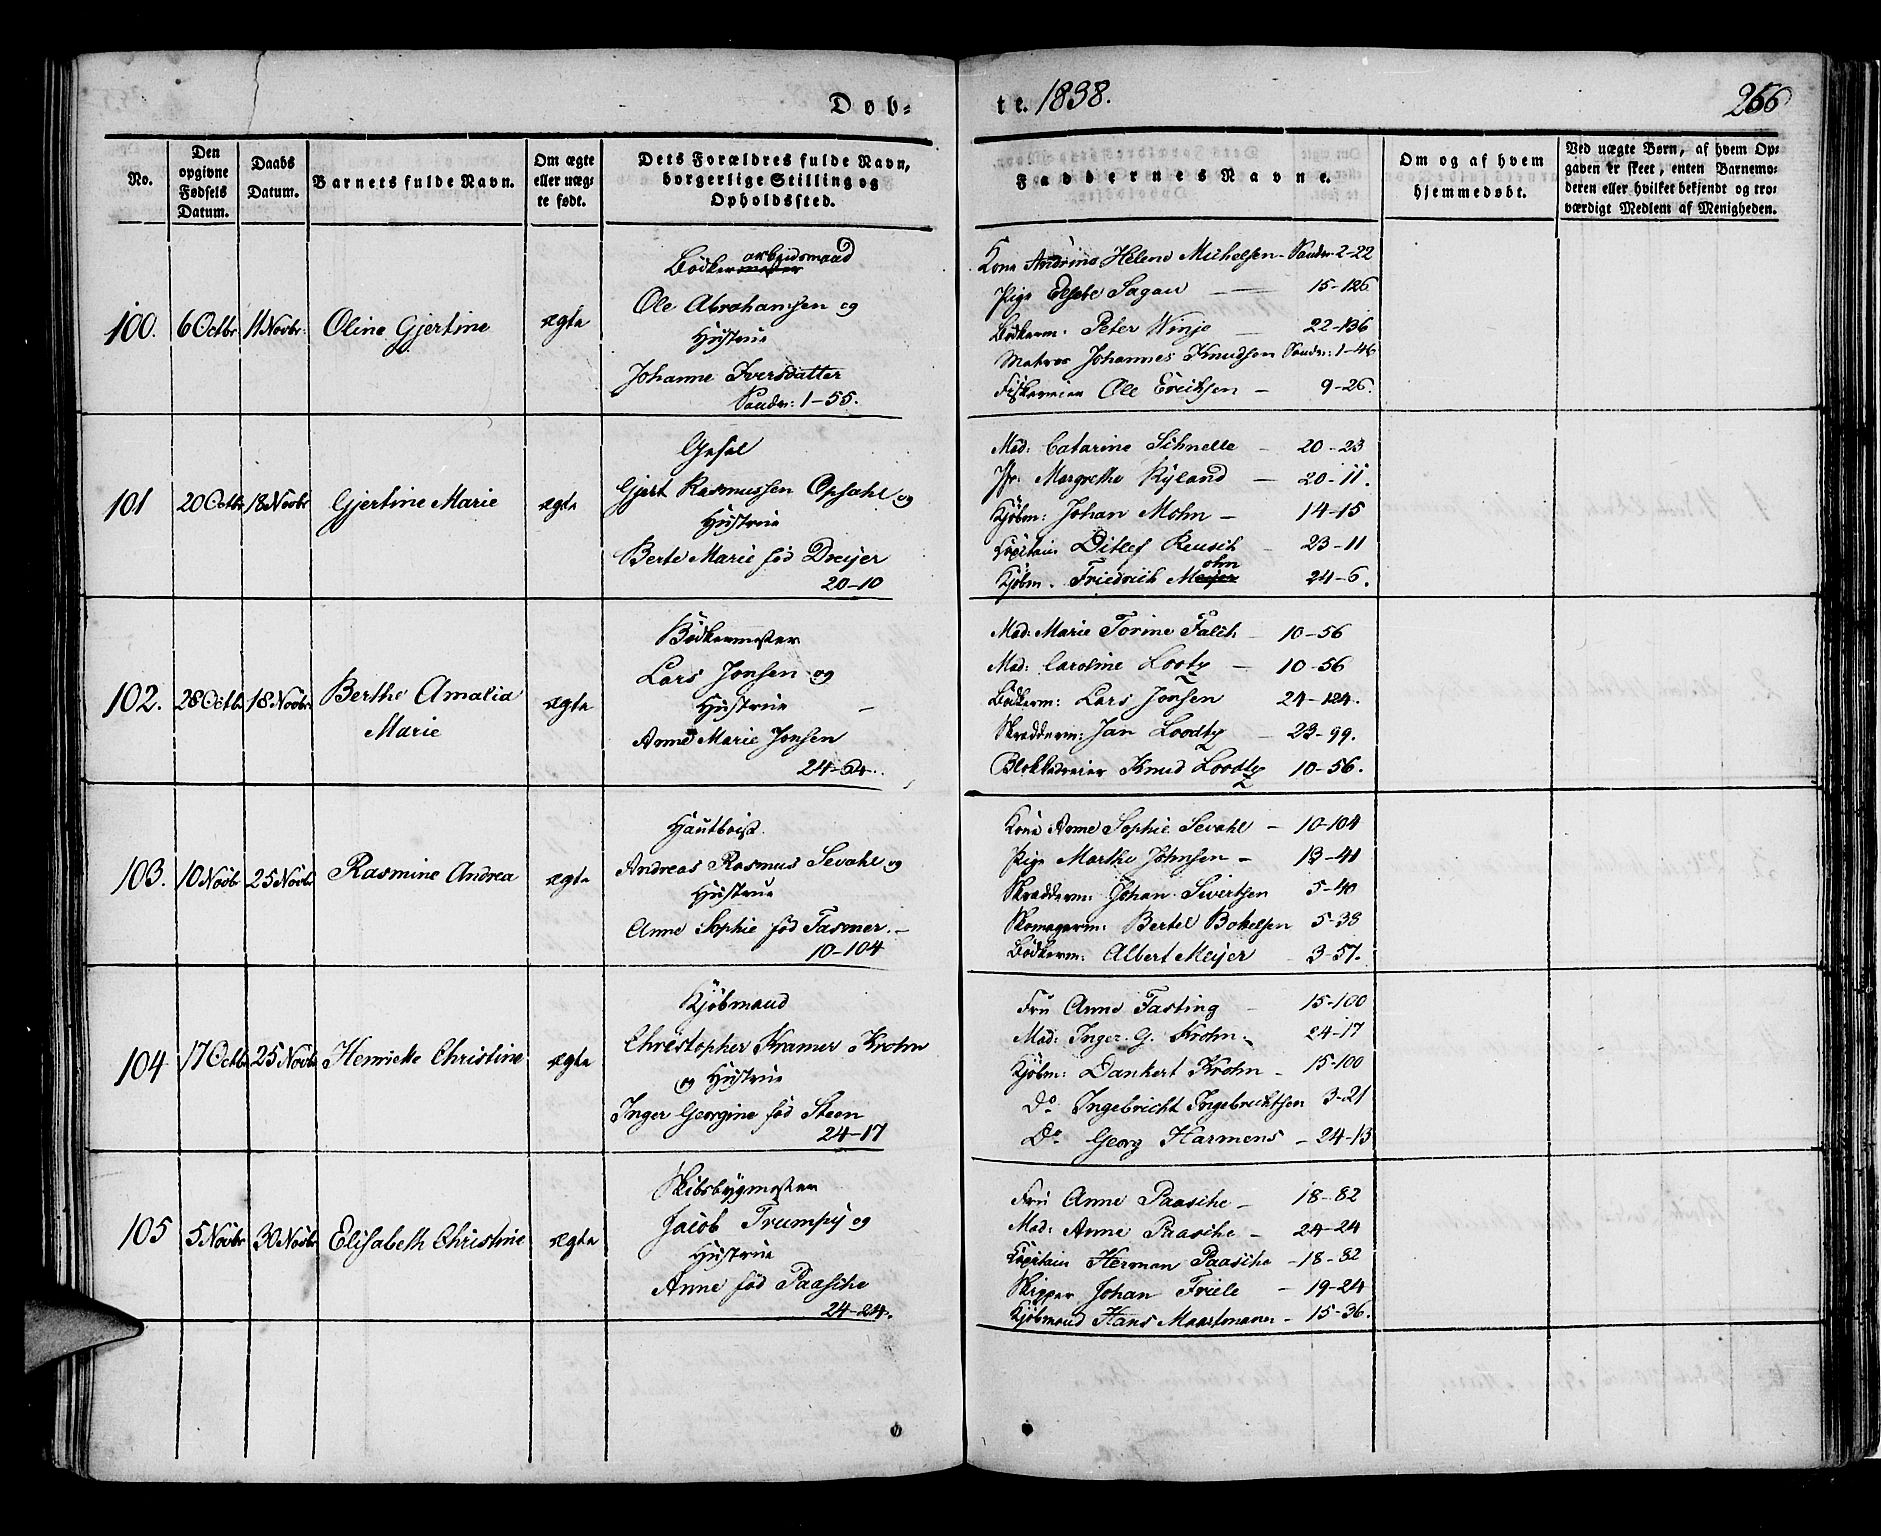 Døb-
te. 1838.
266
No.
Den opgivne Fødsels Datum.
Daabs Datum.
Barnets fulde Navn.
Om ægte eller uægte født.
Dets Forældres fulde Navn, borgerlige Stilling og Opholdssted.
Faddernes Navne.
Om og af hvem hjemmedøbt.
Ved uægte Børn, af hvem Opgaven er skeet, enten Barnemoderen eller hvilket bekjendt og troværdigt Medlem af Menigheden.
100. 6 Octbr 11 Novbr: Oline Gjertine ægte
Bödkermester arbeidsmand
Ole Abrahamsen og
Hustrue
Johanne Iversdatter
Sandv: 1-55.
Kone Andrine Helene Michelsen - Sandv: 2-22
Pige Elsebe Sagau — 15-126
Bödkerm: Peter Winje — 22-136
Matros Johannes Knudsen Sandv: 1-46
Ole Ericksen — 9-26.
101 20 Octbr 18 Novbr Gjertine Marie ægte
Gjert Rasmussen Opsahl og
Hustrue
Berte Marie föd Dreijer
20-10
Mad: Catarine Schnelle — 20-23
Jfr: Margrethe Ryland — 20-11.
Kjöbm: Johan Mohn — 14-15
Capitain Ditlef Reusch — 23-11
Kjöbm. Friedrich Meijer ohn 24-6.
102. 28 Octbr 18 Novbr Berthe Amalia Marie ægte
Bödkermester
Lars Jonsen og
Hustrue —
Anne Marie Jonsen
Mad: Marie Torine Falch — 10-56
Mad: Caroline Lootz — 10-56
Bödkerm: Lars Jonsen 24-124.
Skrædderm: Jan Loodtz — 23-99.
Blokkedreier Knud Loodtz 10-56.
103. 10 Novbr 25 Novbr Rasmine Andrea ægte
Hautboist
Andreas Rasmus Sevahl og
Hustrue
Anne Sophie föd Tasmer. —
10-104
Kone Anne Sophie Sevahl — 10-104
Pige Marthe Johnsen — 13-41
Skrædderm: Johan Sivertsen 5-40
Skomagerm: Bertel Bottelsen 5-38
Bödkerm: Albert Meijer — 3-57.
104 17 Octbr 25 Novbr Henriette Christine ægte
Kjöbmand
Christopher Kramer Krohn
og Hustrue
Inger Georgine föd Steen
24-17
Fru Anne Fasting — 15-100
Mad: Inger G. Krohn — 24-17
Kjöbm: Dankert Krohn — 15-100
Do. Ingebricht Ingebrichtsen 3-21
Do. Georg Harmens — 24-13
105 5 Novbr 30 Novbr Elisabeth Christine ægte
Skibsbygmester
Jacob Trumpy og
Hustrue
Anne föd Paasche
24-24.
Fru Anne Paasche — 18-82
Mad: Anne Paasche — 24-24
Capitain Herman Paasche — 18-82
Skipper Johan Friele — 19-24
Kjöbmand Hans Maartmann — 15-36.